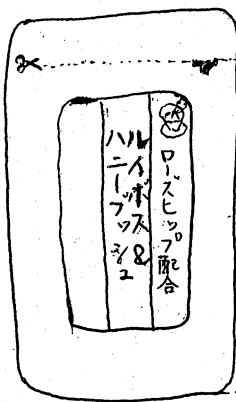 ローズヒップ配合
ルイボス&
ハニーブッシュ